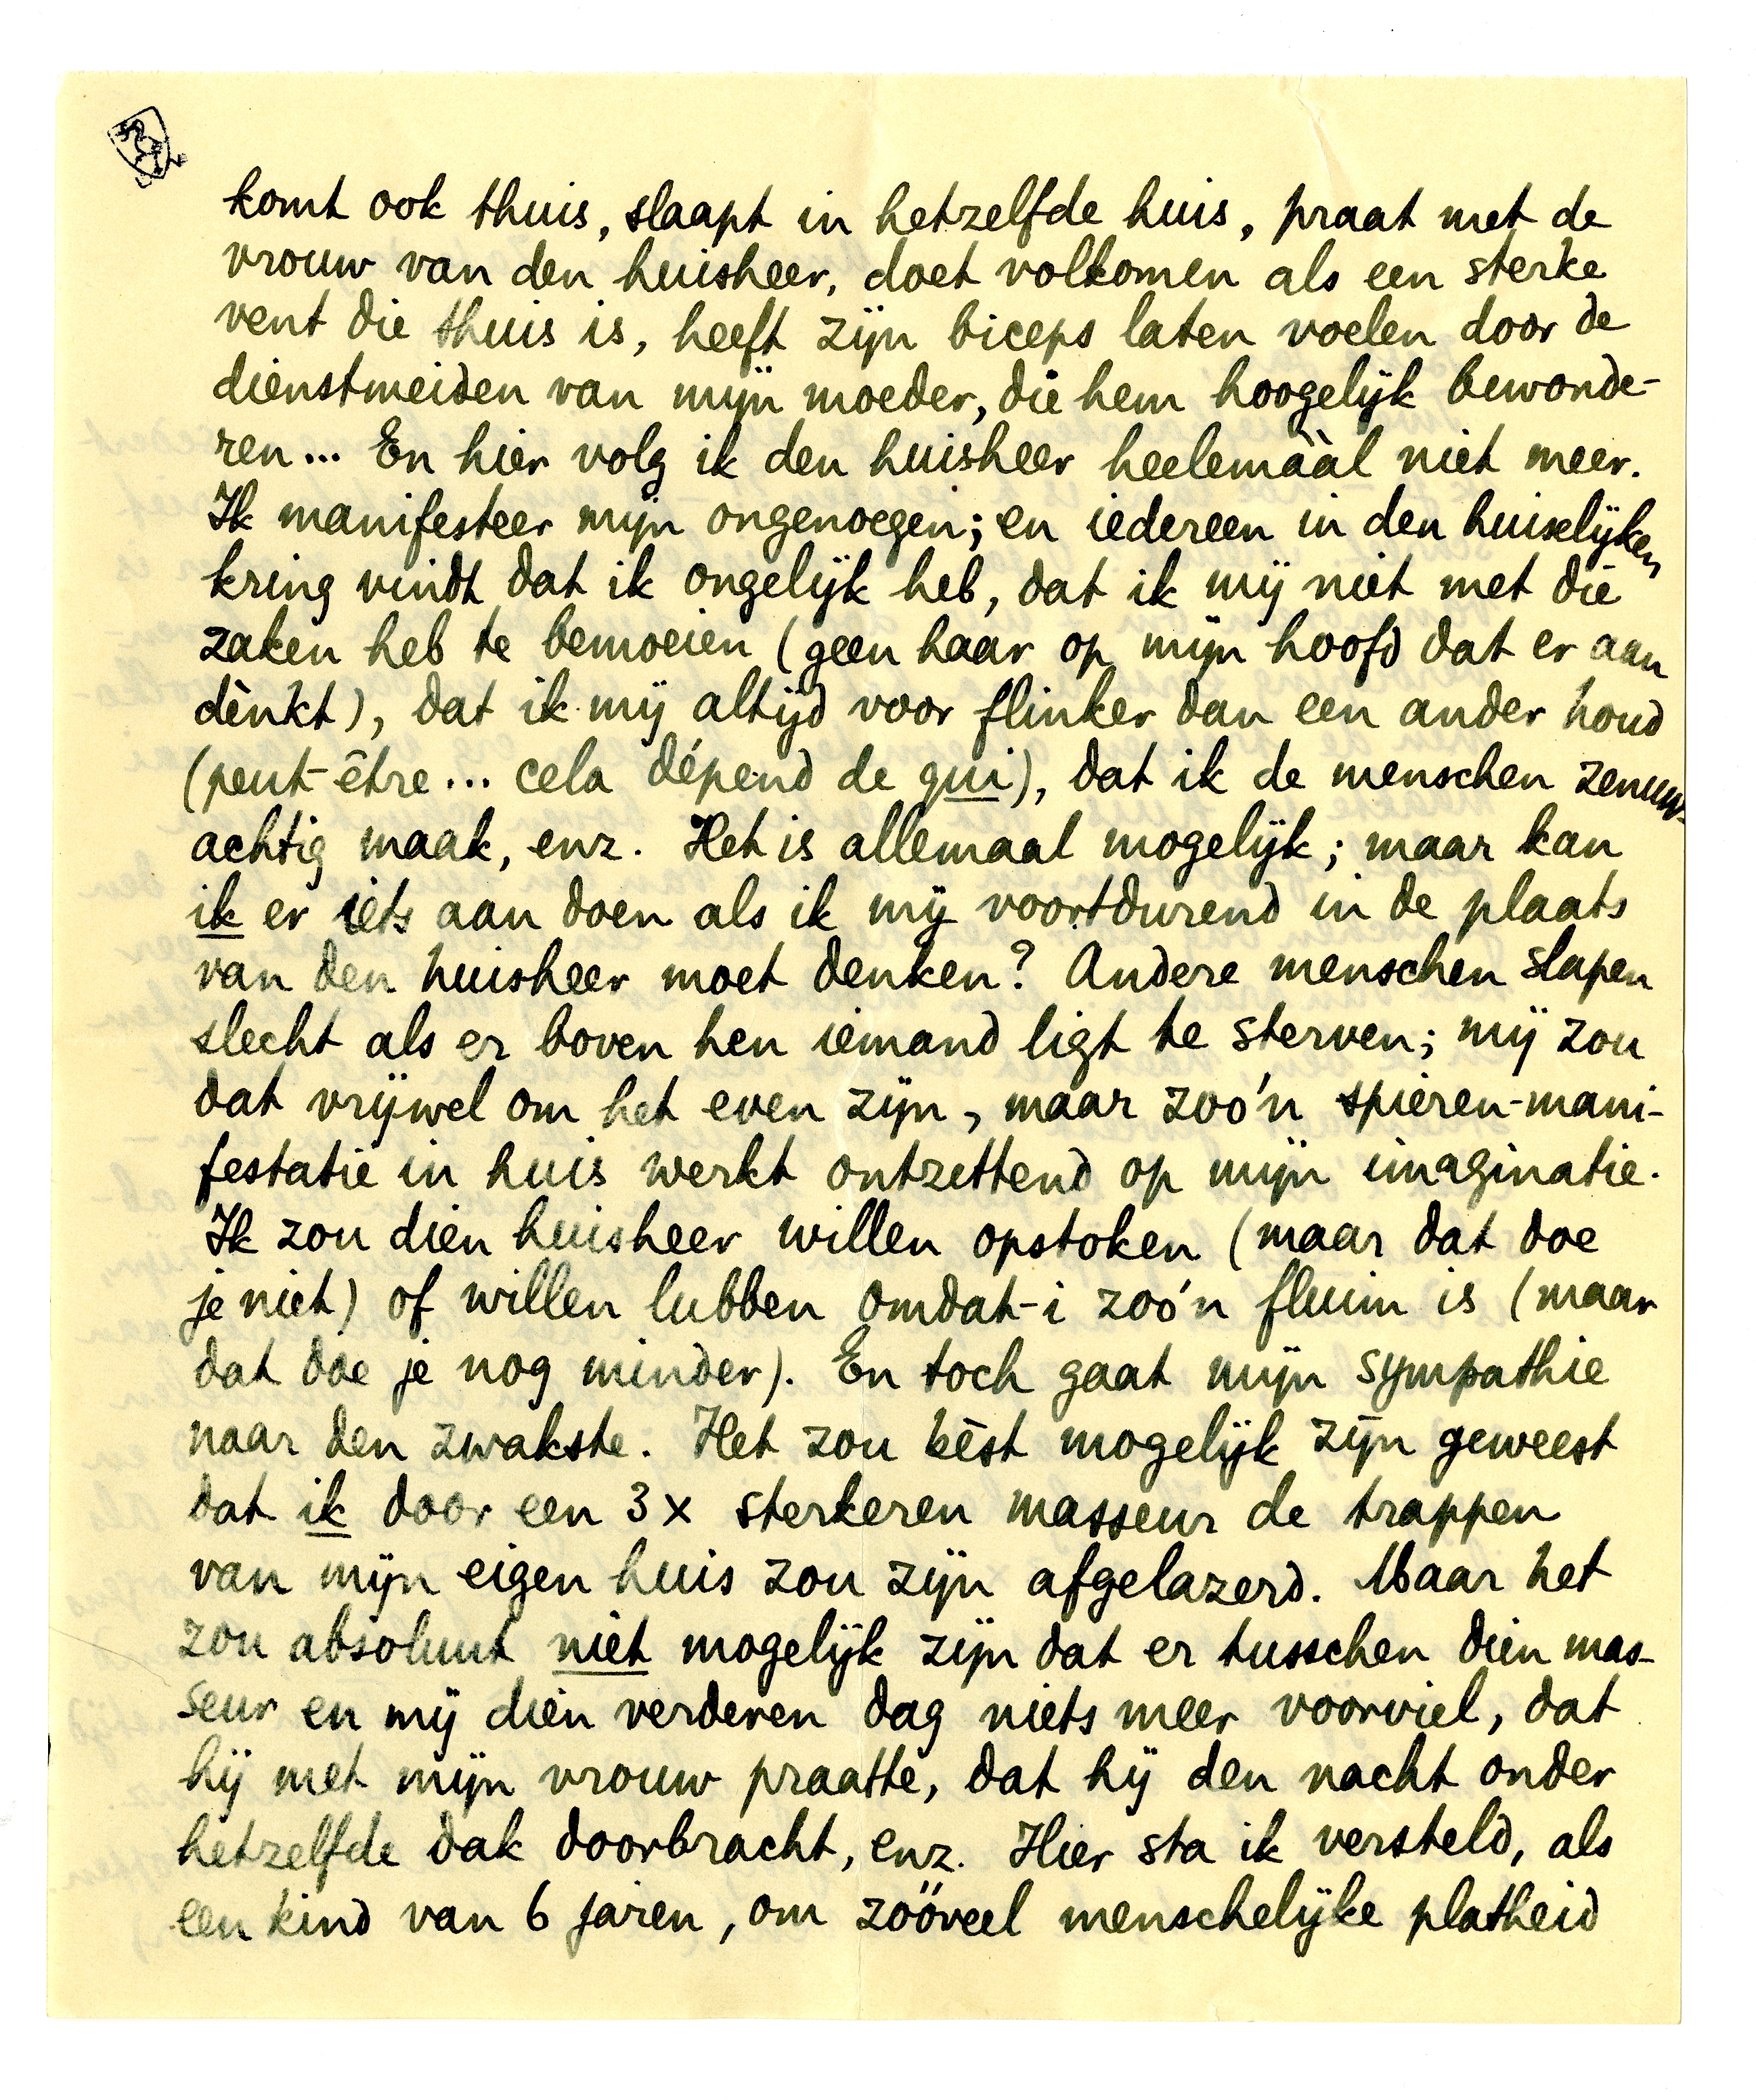 komt ook thuis, slaapt in hetzelfde huis, praat met de
vrouw van den huisheer, doet volkomen als een sterke
vent die thuis is, heeft zijn biceps laten voelen door de
dienstmeiden van mijn moeder, die hem hoogelijk bewonde-
ren... En hier volg ik den huisheer heelemààl niet meer.
Ik manifesteer mijn ongenoegen; en iedereen in den huiselijken
kring vindt dat ik ongelijk heb, dat ik mij niet met die
zaken heb te bemoeien (geen haar op mijn hoofd dat er aan
dènkt), dat ik mij altijd voor flinker dan een ander houd
(peut-être... cela dépend de qui), dat ik de menschen zenuw-
achtig maak, enz. Het is allemaal mogelijk; maar kan
ik er iets aan doen als ik mij voortdurend in de plaats
van den huisheer moet denken? Andere menschen slapen
slecht als er boven hen iemand ligt te sterven; mij zou
dat vrijwel om het even zijn, maar zoo'n spieren-mani-
festatie in huis werkt ontzettend op mijn imaginatie.
Ik zou dien huisheer willen opstoken (maar dat doe
je niet) of willen lubben omdat-i zoo'n fluim is (maar
dat doe je nog minder). En toch gaat mijn sympathie
naar den zwakste. Het zou bèst mogelijk zijn geweest
dat ik door een 3 x sterkeren masseur de trappen
van mijn eigen huis zou zijn afgelazerd. Maar het
zou absoluut niet mogelijk zijn dat er tusschen dien mas-
seur en mij dien verderen dag niets meer voorviel, dat
hij met mijn vrouw praatte, dat hij den nacht onder
hetzelfde dak doorbracht, enz. Hier sta ik versteld, als
een kind van 6 jaren, om zööveel menschelijke platheid